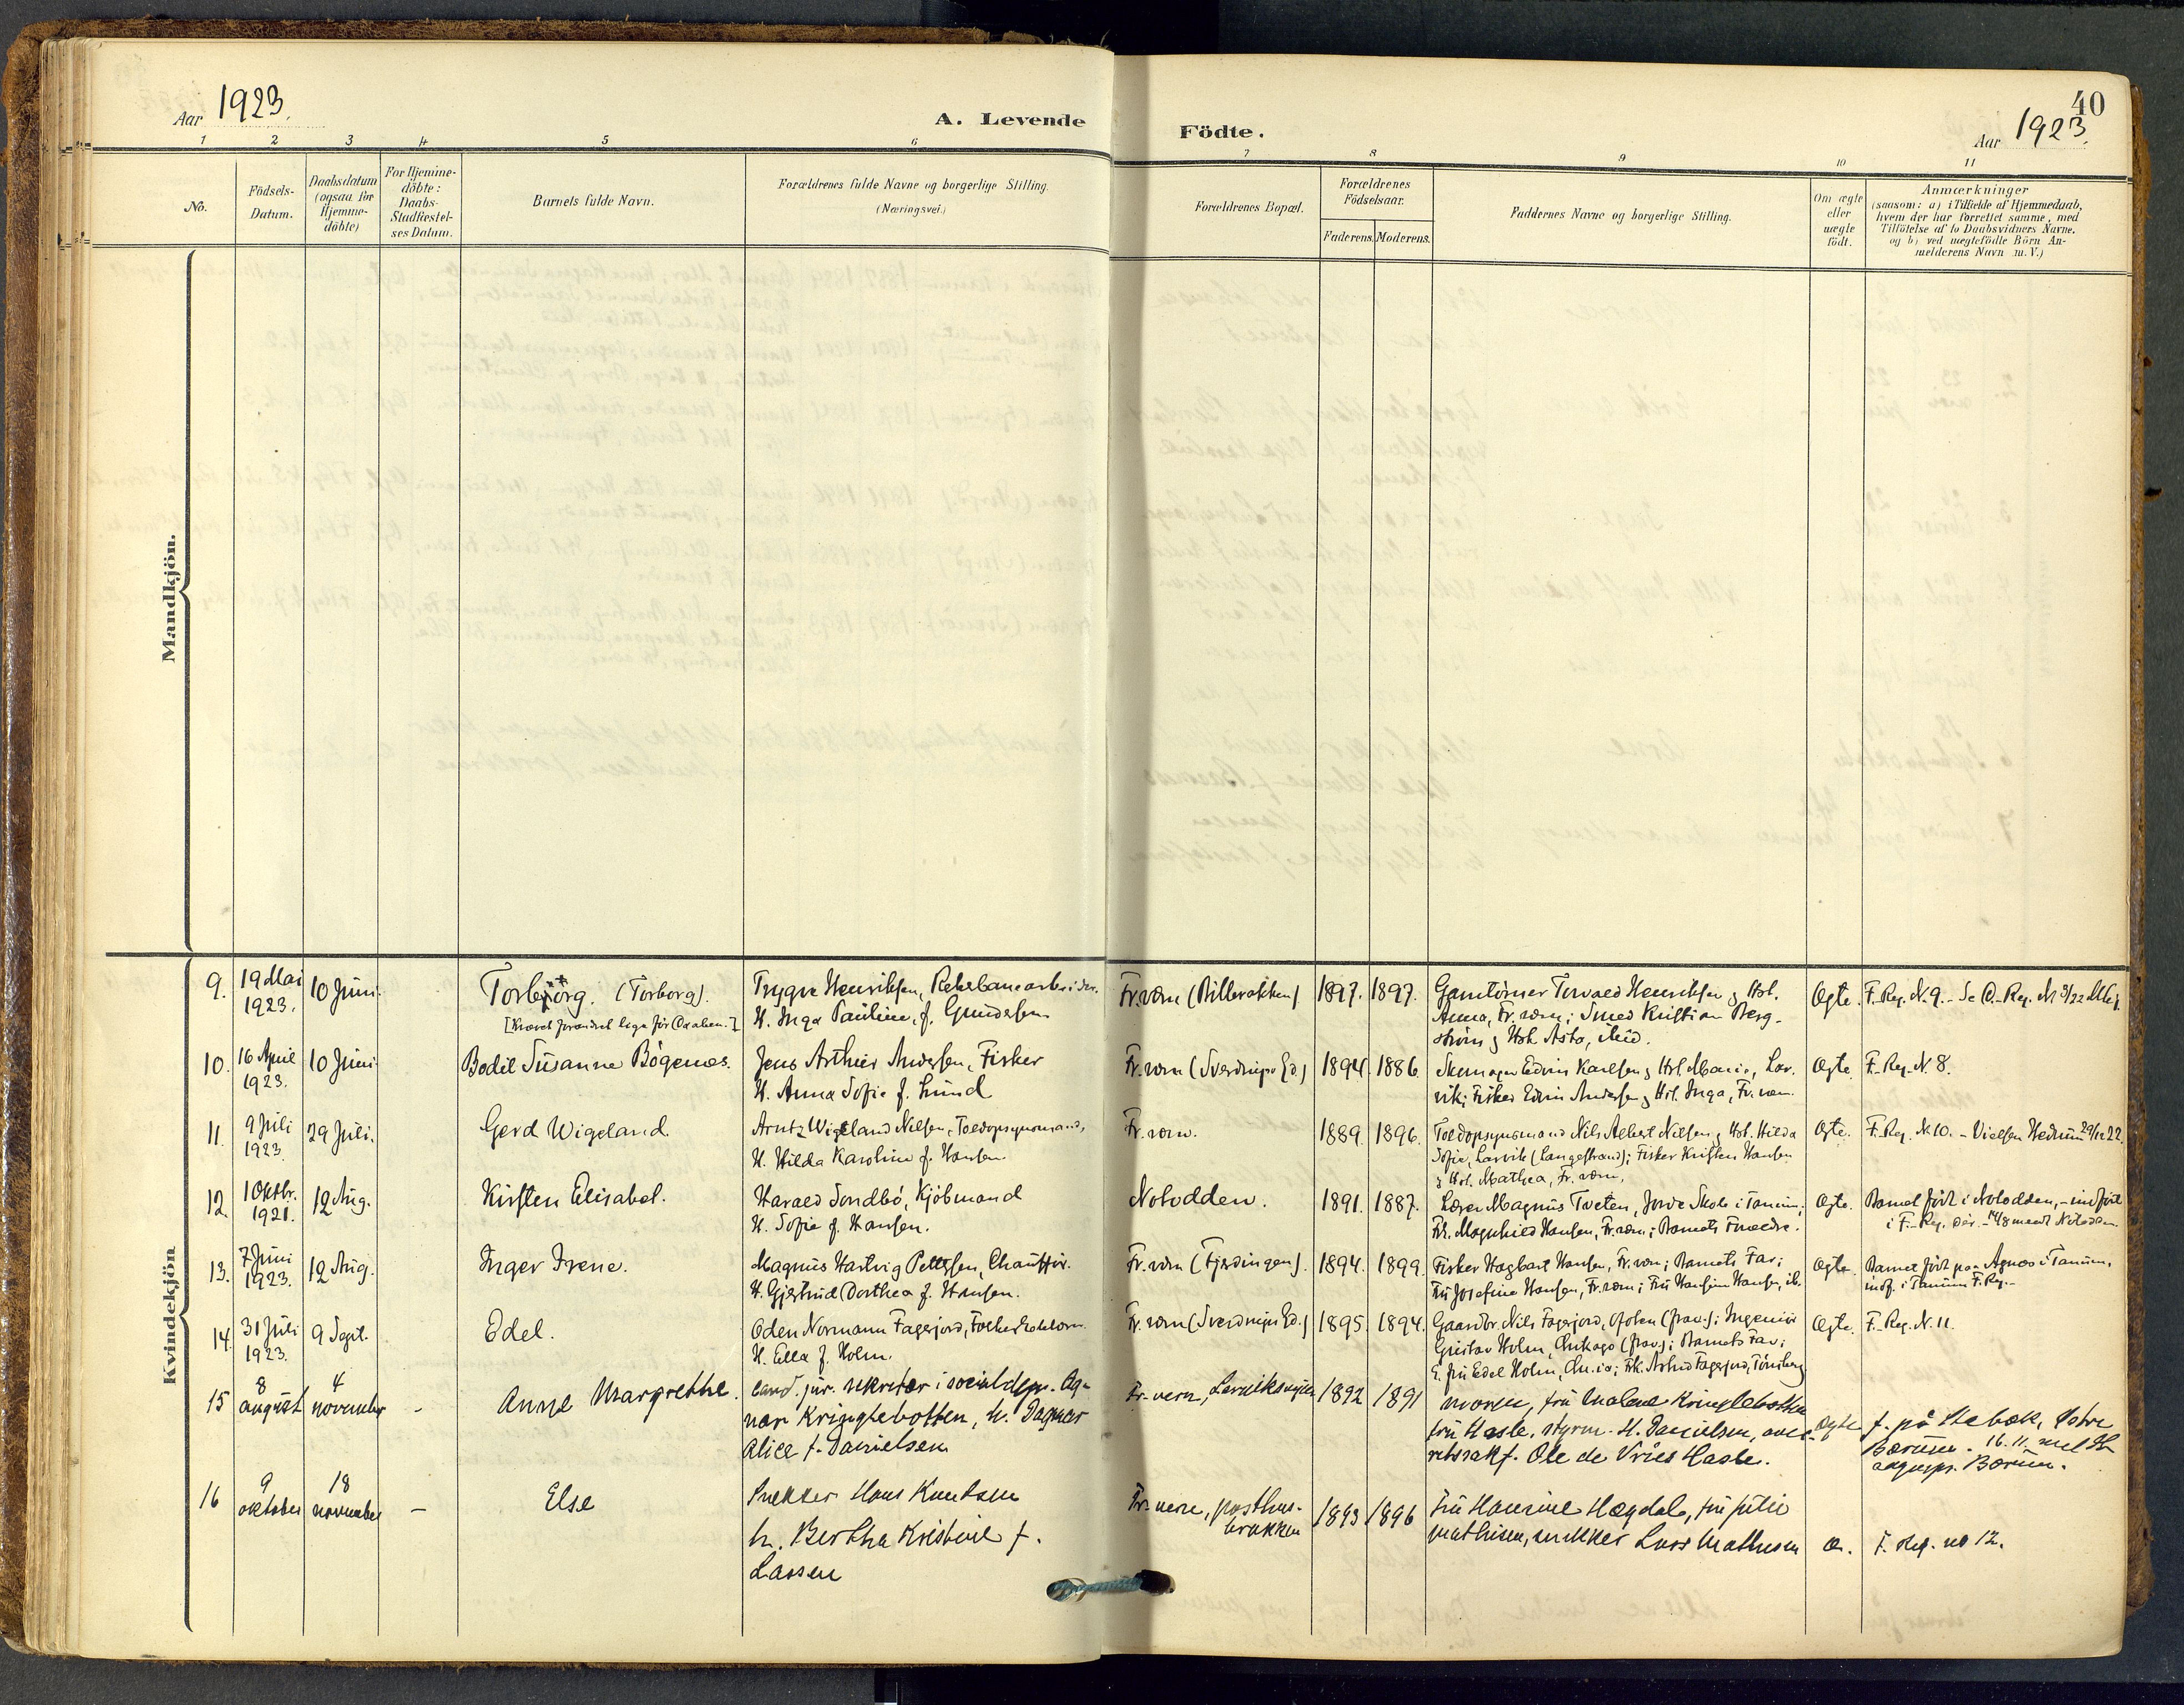 Aar 1923.
A. Levende
Födte.
40
Aar 1923.
1 2 3 4 5 6 7 8 9 10 11
No.
Födsels-
Datum.
Daabsdatum
(ogsaa for
Hjemme-
döbte)
For Hjemme-
döbte:
Daabs-
Stadfæstel-
ses Datum.
Barnets fulde Navn.
Forældrenes fulde Navne og borgerlige Stilling.
(Næringsvei.)
Forældrenes Bopæl.
Forældrenes
Födselsaar.
Faderens. Moderens.
Faddernes Navne og borgerlige Stilling.
Om ægte
eller
uægte
födt.
Anmærkninger
(saasom: a) i Tilfælde af Hjemmedaab,
hvem der har forrettet samme, med
Tilföielse af to Daabsvidners Navne.
og b) ved uægtefödte Börn An-
melderens Navn m. V.)
Mandkjön.
Kvindekjön
9.
19 Mai
1923.
10 Juni.
Torbjörg. (Torborg).
Trygve Henriksen,
H. Inga Pauline, f. Gundersen
Fr.værn
1897. 1897.
Henriksen & Hst.
Anna, Fr.værn; Smed Kristian Berg-
ström & Hst. Asta,
Egte.
F.-Reg. N. 9.
10.
16 April
1923.
10 Juni
Bodil Susanne Bögenæs.
Jens Arthur Andersen, Fisker
H. Anna Sofie f. Lund
Fr.værn
1894. 1886.
Edvin Karlsen & Hst. Marie, Lar-
vik; Fisker Edvin Andersen & Hst. Inga, Fr.værn.
Egte.
F.-Reg. N. 8.
11.
9 Juli
1923
29 Juli.
Gerd Wigeland.
Arntz Wigeland Nilsen, Toldopsynsmand,
H. Hilda Karoline f. Hansen
Fr.værn.
1889. 1896.
Toldopsynsmand Nils Albert Nilsen & Hst. Hilda
Sofie, Larvik (Langestrand); Fisker Kristen Hansen
& Hst. Mathea, Fr.værn.
Egte.
F.-Reg. N. 10. - Vielsen Hedrum 29/12 22.
12.
1 Oktbr.
1921.
12 Aug.
Kirsten Elisabet.
Harald Sondbö, Kjöbmand
H. Sofie f. Hansen.
Notodden.
1891. 1887.
Lærer Magnus Tveten, Skole i Tanum;
Frk. Magnhild Hansen, Fr.værn; Barnets Forældre.
Egte.
Barnet födt i Notodden, - indfört
i F.-Reg. der. - 14/8 medt Notodden
13.
7 Juni
1923.
12 Aug.
Inger Irene.
Magnus Hartvig Pettersen, Chaufför.
H. Gjertrud Dorthea f. Hansen.
Fr.værn (Fjerdingen).
1894. 1899.
Fisker Hagbart Hansen, Fr.værn; Barnets Far;
Fru Josefine Hansen, Fr.værn; Fru Hansine Hansen, ib.
Egte.
Barnet födt paa Agnes i Tanum,
indf. i Tanum F. Reg.-
14.
31 Juli
1923.
9 Sept.
Edel.
Oden Normann Fagerjord,
H. Ella f. Holm.
Fr.værn
1895. 1894.
Gaardbr. Nils Fagerjord, Ofoten (frav.); Ingeniör
Gustav Holm, Chikago (frav.); Barnets Far;
E. fru Edel Holm, Frk. Astrid Fagerjord, Tönsberg
Egte.
F.-Reg. N. 11.
15
8
august
4
november
-
Anne Margrethe.
cand. jur. sekretær i socialdepr. Ag-
nar Kringlebotten, h. Dagmar
Alice f. Danielsen
Fr.vern,
1892 1891
moren, fru Malene Kringlebotten
fru Hasle, styrm. H. Danielsen, over-
retssakf. Ole de Vries Hasle.
Egte
f. på Stabæk, Vestre
Bærum. 16.11. meldt
sognepr. Bærum.
16
9
oktober
18
november
-
Else
Snekker Hans Knutsen
h. Bertha Kristine f.
Lassen
Fr.vern, posthus-
brakken
1893 1896
Fru Hansine Hægdal, fru Julie
Mathisen, snekker Lars Mathisen
Æ.
F. Reg. no 12.